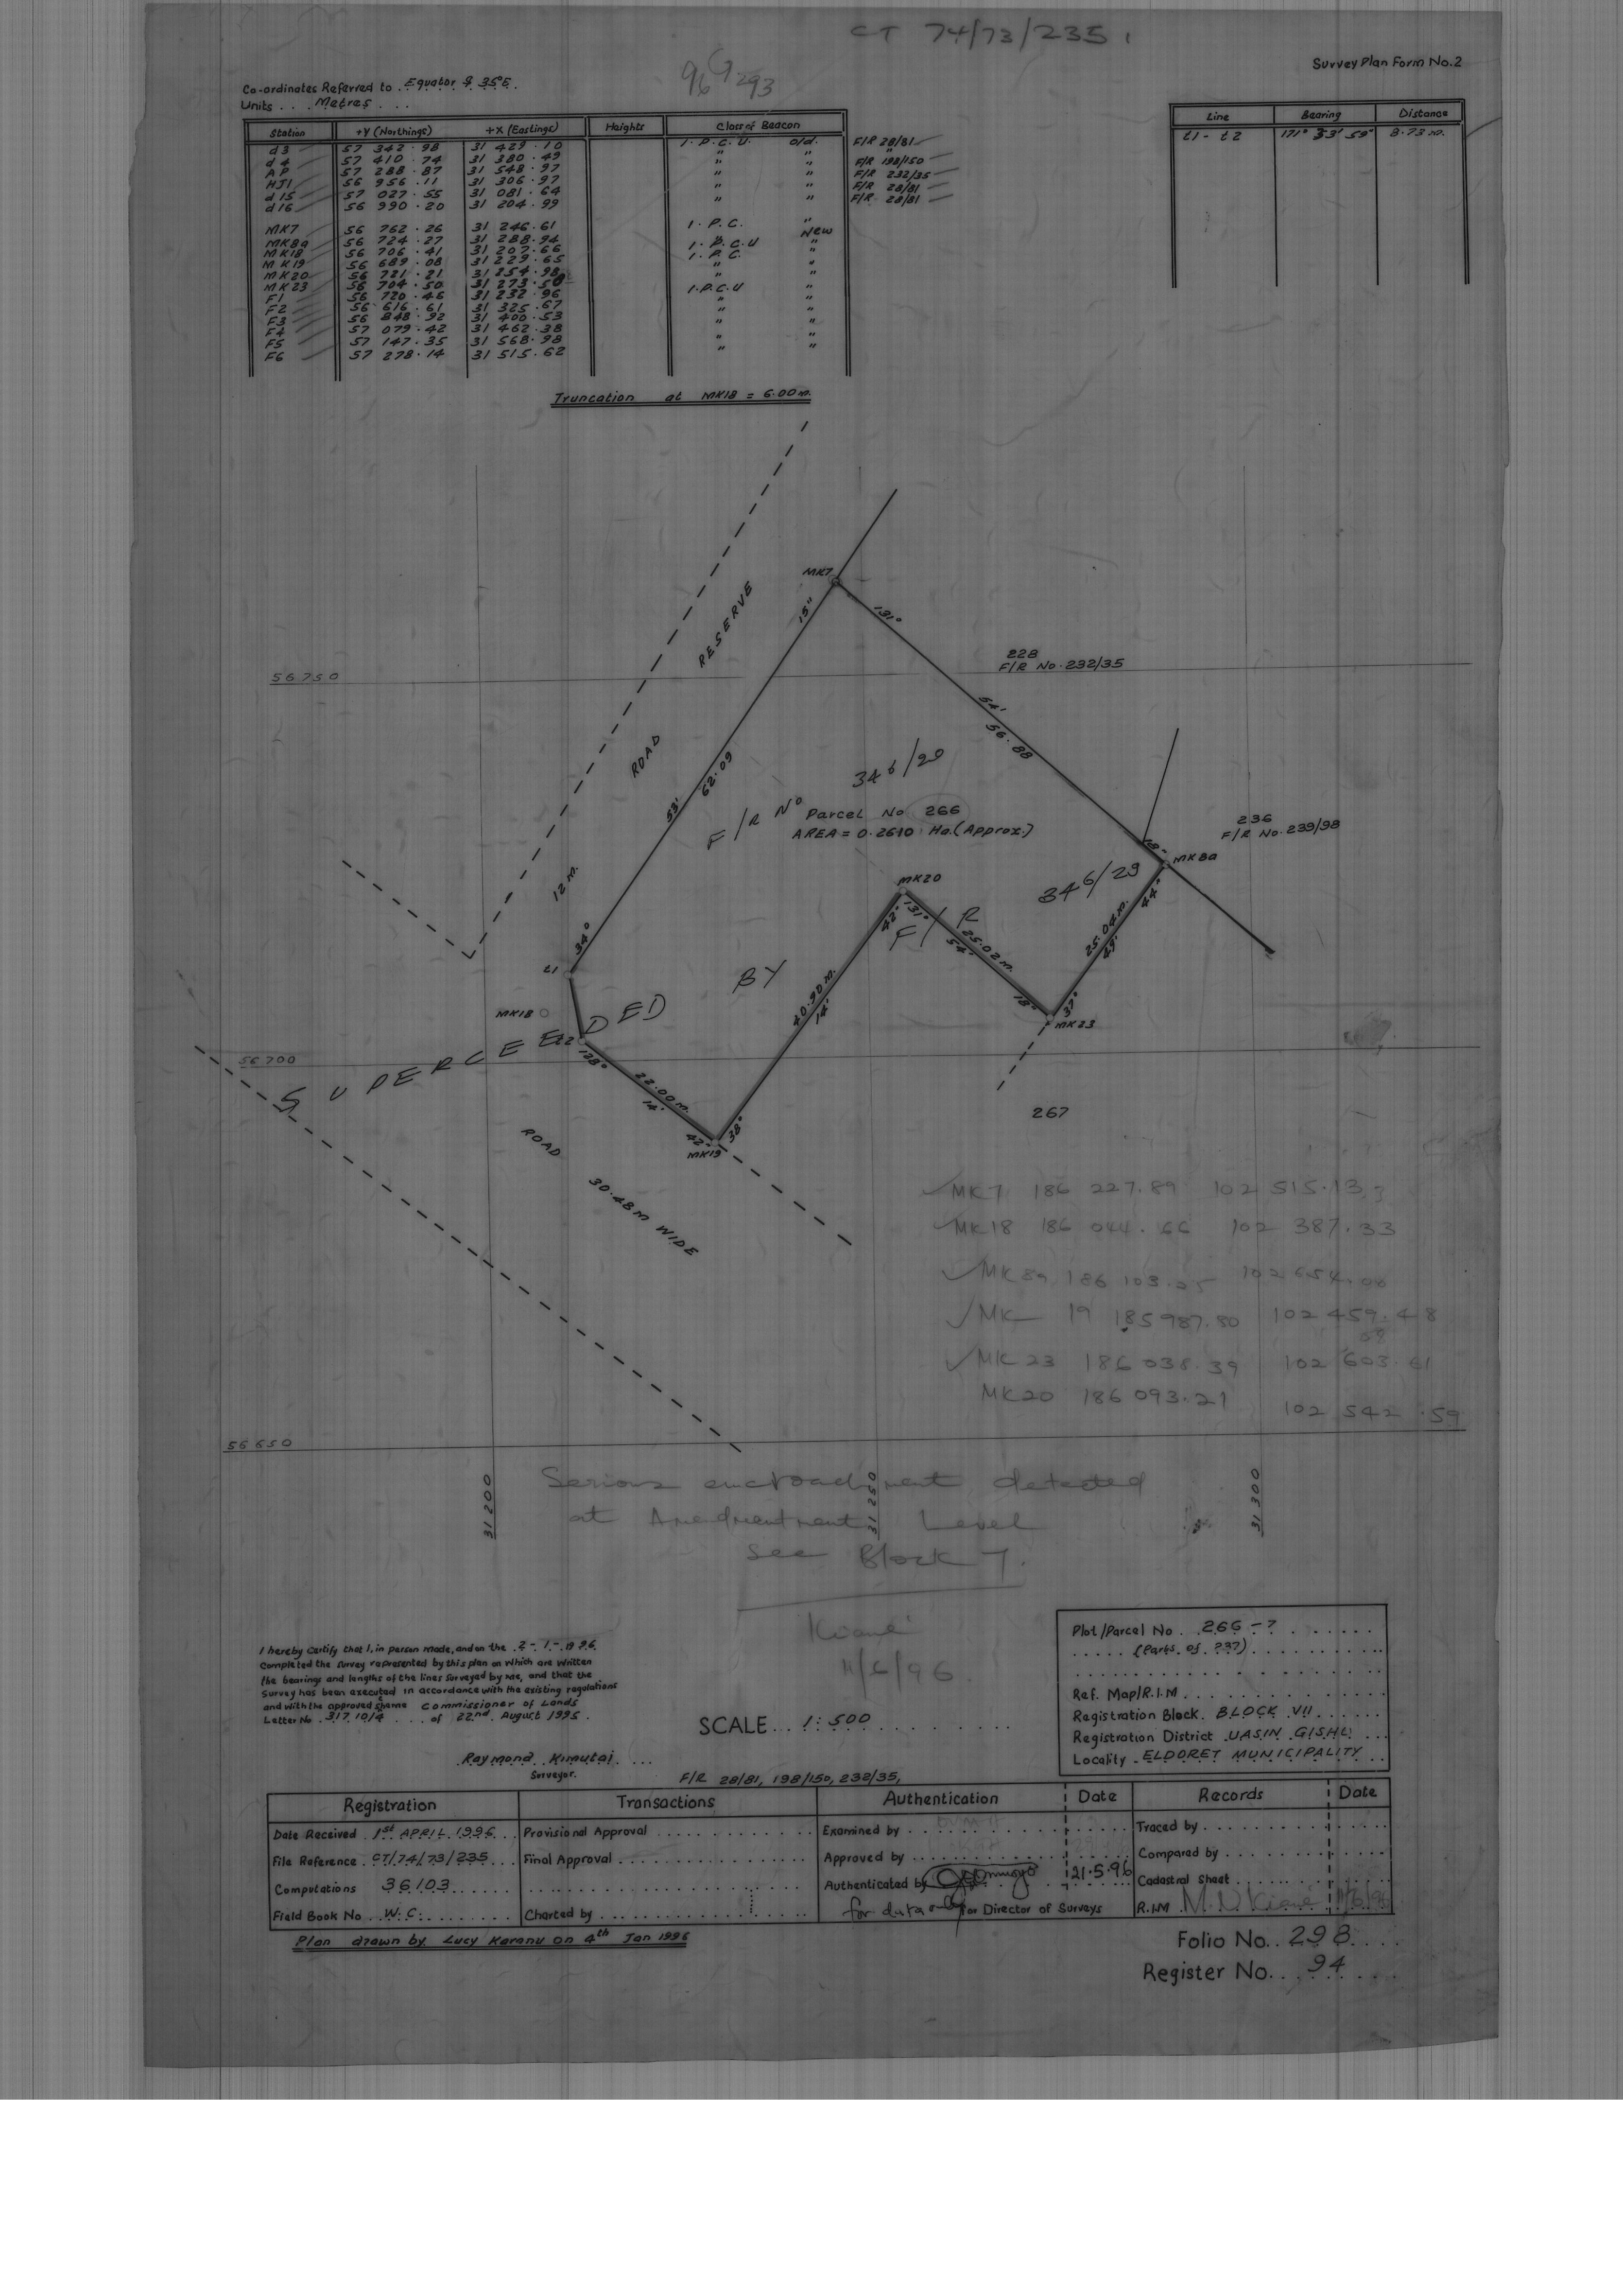 CT 74/73/235
96 G 293
Survey Plan Form No.2
Co-ordinates Referred to . Equator & 35°E.
Units . . Metres . . .
Station +Y (Northings) +X (Eastings) Heights Class of Beacon
d3 57 342.98 31 429.10 I.P.C.U. Old. F/R 28/81
d4 57 410.74 31 380.49 " " "
AP 57 288.87 31 548.97 " " F/R 198/150
HJ1 56 956.11 31 306.97 " " F/R 232/35
d15 57 027.55 31 081.64 " " F/R 28/81
d16 56 990.20 31 204.99 " " F/R 28/81
MK7 56 762.26 31 246.61 I.P.C. "
MK8a 56 724.27 31 288.94 " New
MK18 56 706.41 31 207.66 I.P.C.U "
MK19 56 689.08 31 229.65 I.P.C. "
MK20 56 721.21 31 254.98 " "
MK23 56 704.50 31 273.50 " "
F1 56 720.46 31 232.96 I.P.C.U "
F2 56 616.61 31 325.67 " "
F3 56 848.92 31 400.53 " "
F4 57 079.42 31 462.38 " "
F5 57 147.35 31 568.98 " "
F6 57 278.14 31 515.62 " "
Line Bearing Distance
t1 - t2 171° 33' 59" 8.73 m.
Truncation at MK18 = 6.00m.
MK7
15"
131°
RESERVE
228
F/R No.232/35
56 750
54'
56.88
ROAD
62.09
53'
346/29
F/R No
Parcel No 266
AREA = 0.2610 Ha.(Approx.)
236
F/R No.239/98
18"
MK8a
12 m.
MK20
346/29
44"
42" 131°
F/R
25.02m.
54'
25.04m.
49'
34°
t1
BY
40.90m.
14'
18"
37°
MK18
MK23
SUPERCEEDED
t2
56 700
128°
22.00m.
14'
42"
38°
MK19
267
ROAD
30.48m WIDE
MK7 186 227.89 102 515.13
MK18 186 044.66 102 387.33
MK8a 186 103.25 102 654.00
MK 19 185987.80 102 459.48
MK23 186 038.39 102 603.61
MK20 186 093.21 102 542.59
56 650
31 200
31 250
31 300
Serious encroachment detected
at Amendment Level
See Block 7.
Kiani
11/6/96
I hereby Certify that I, in person made, and on the .2 - 1. - 1996.
Completed the Survey represented by this plan on which are Written
the bearings and lengths of the lines Surveyed by me, and that the
Survey has been executed in accordance with the existing regulations
and with the approved scheme Commissioner of Lands
Letter No .31710/4 . . . of 22nd. August 1995 .
Raymond Kimutai . . .
Surveyor.
SCALE . . 1:500 . . . . . . . .
Plot/Parcel No . 266 - 7 . . . . . . .
. . . . . (Parts of 237) . . . . . . . . .
Ref. Map/R.I.M . . . . . . . . . . . .
Registration Block. BLOCK VII . . . . . .
Registration District .UASIN GISHU . . .
Locality . ELDORET MUNICIPALITY . .
F/R 28/81, 198/150, 232/35,
Registration Transactions Authentication Date Records Date
Date Received . 1st APRIL 1996 . . Provisional Approval . . . . . . . . . . Examined by . . . . . . . . . . Traced by . . . . . . . .
File Reference . CT/74/73/235 . . . Final Approval . . . . . . . . . . . . Approved by . . . . . . . . . . Compared by . . . . . . .
Computations 36103 . . . . . Authenticated by 21.5.96 Cadastral Sheet . . . . . . .
Field Book No . W.C. . . . . . . . Charted by . . . . . . . . . . . . for data only for Director of Surveys R.I.M M.N. Kiani 11/6/96
Plan drawn by Lucy Karanu on 4th Jan 1996
Folio No. . 298 . . . .
Register No. . . 94 . . . .